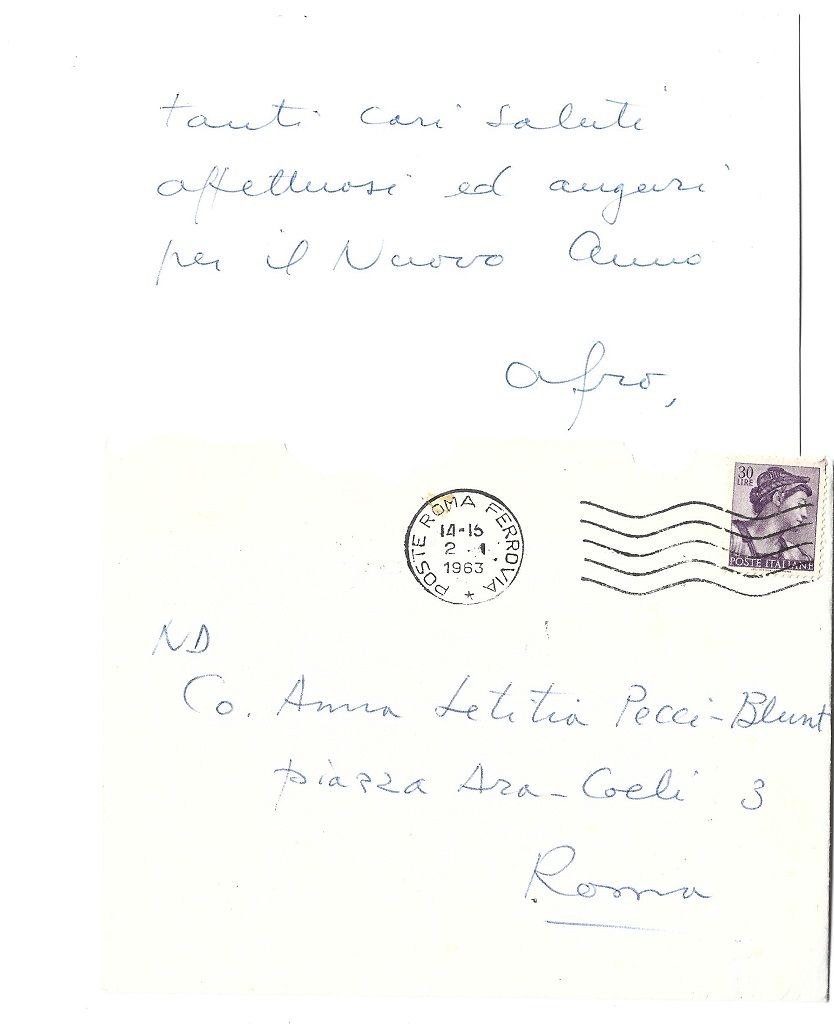 tanti cari saluti
affettuosi ed auguri
per il Nuovo Anno
Afro,
POSTE ROMA FERROVIA
14-15
2 . 1 .
1963
*
30
LIRE
POSTE ITALIANE
ND
Co. Anna Letitia Pecci-Blunt
piazza Ara-Coeli 3
Roma